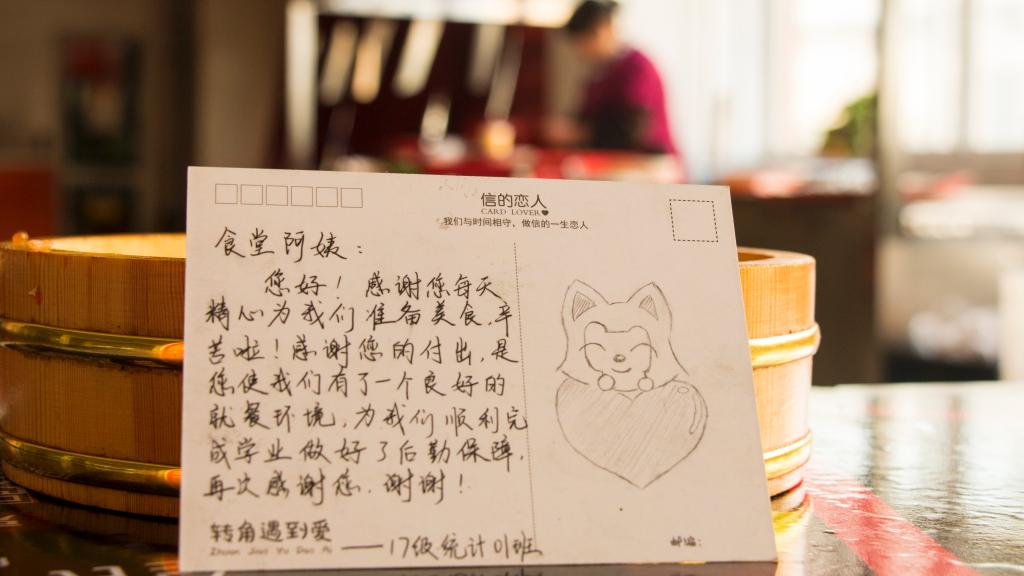 信的恋人
CARD LOVER
我们与时间相守，做信的一生恋人
食堂阿姨：
您好！感谢您每天
精心为我们准备美食,辛
苦啦！感谢您的付出,是
您使我们有了一个良好的
就餐环境,为我们顺利完
成学业做好了后勤保障,
再次感谢您.谢谢！
转角遇到爱
Zhuan Jiao Yu Dao Ai
——17级统计01班
邮编：